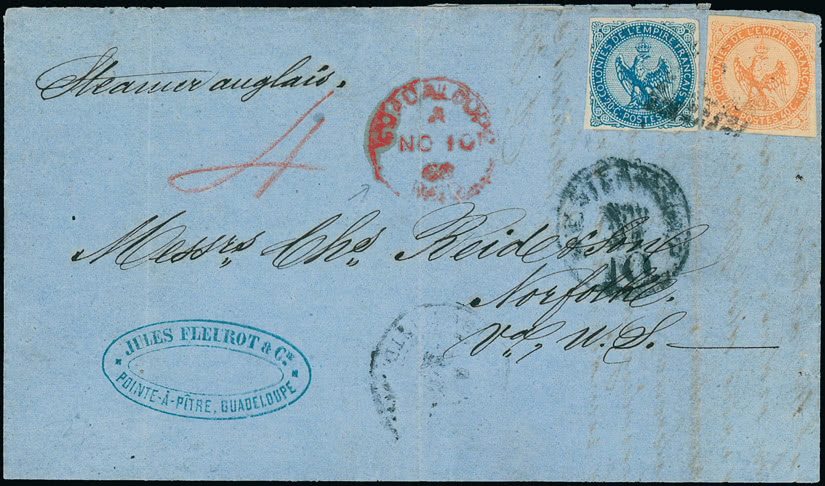 COLONIES DE L'EMPIRE FRANÇAIS
20c. POSTES 20c.
COLONIES DE L'EMPIRE FRANÇAIS
POSTES
Steamer anglais.
4
GUADALOUPE
A
NO 10
Messrs Chs Reid & Son
Norfolk.
Va, U.S.
10
JULES FLEUROT & Cie
POINTE-À-PÎTRE, GUADELOUPE